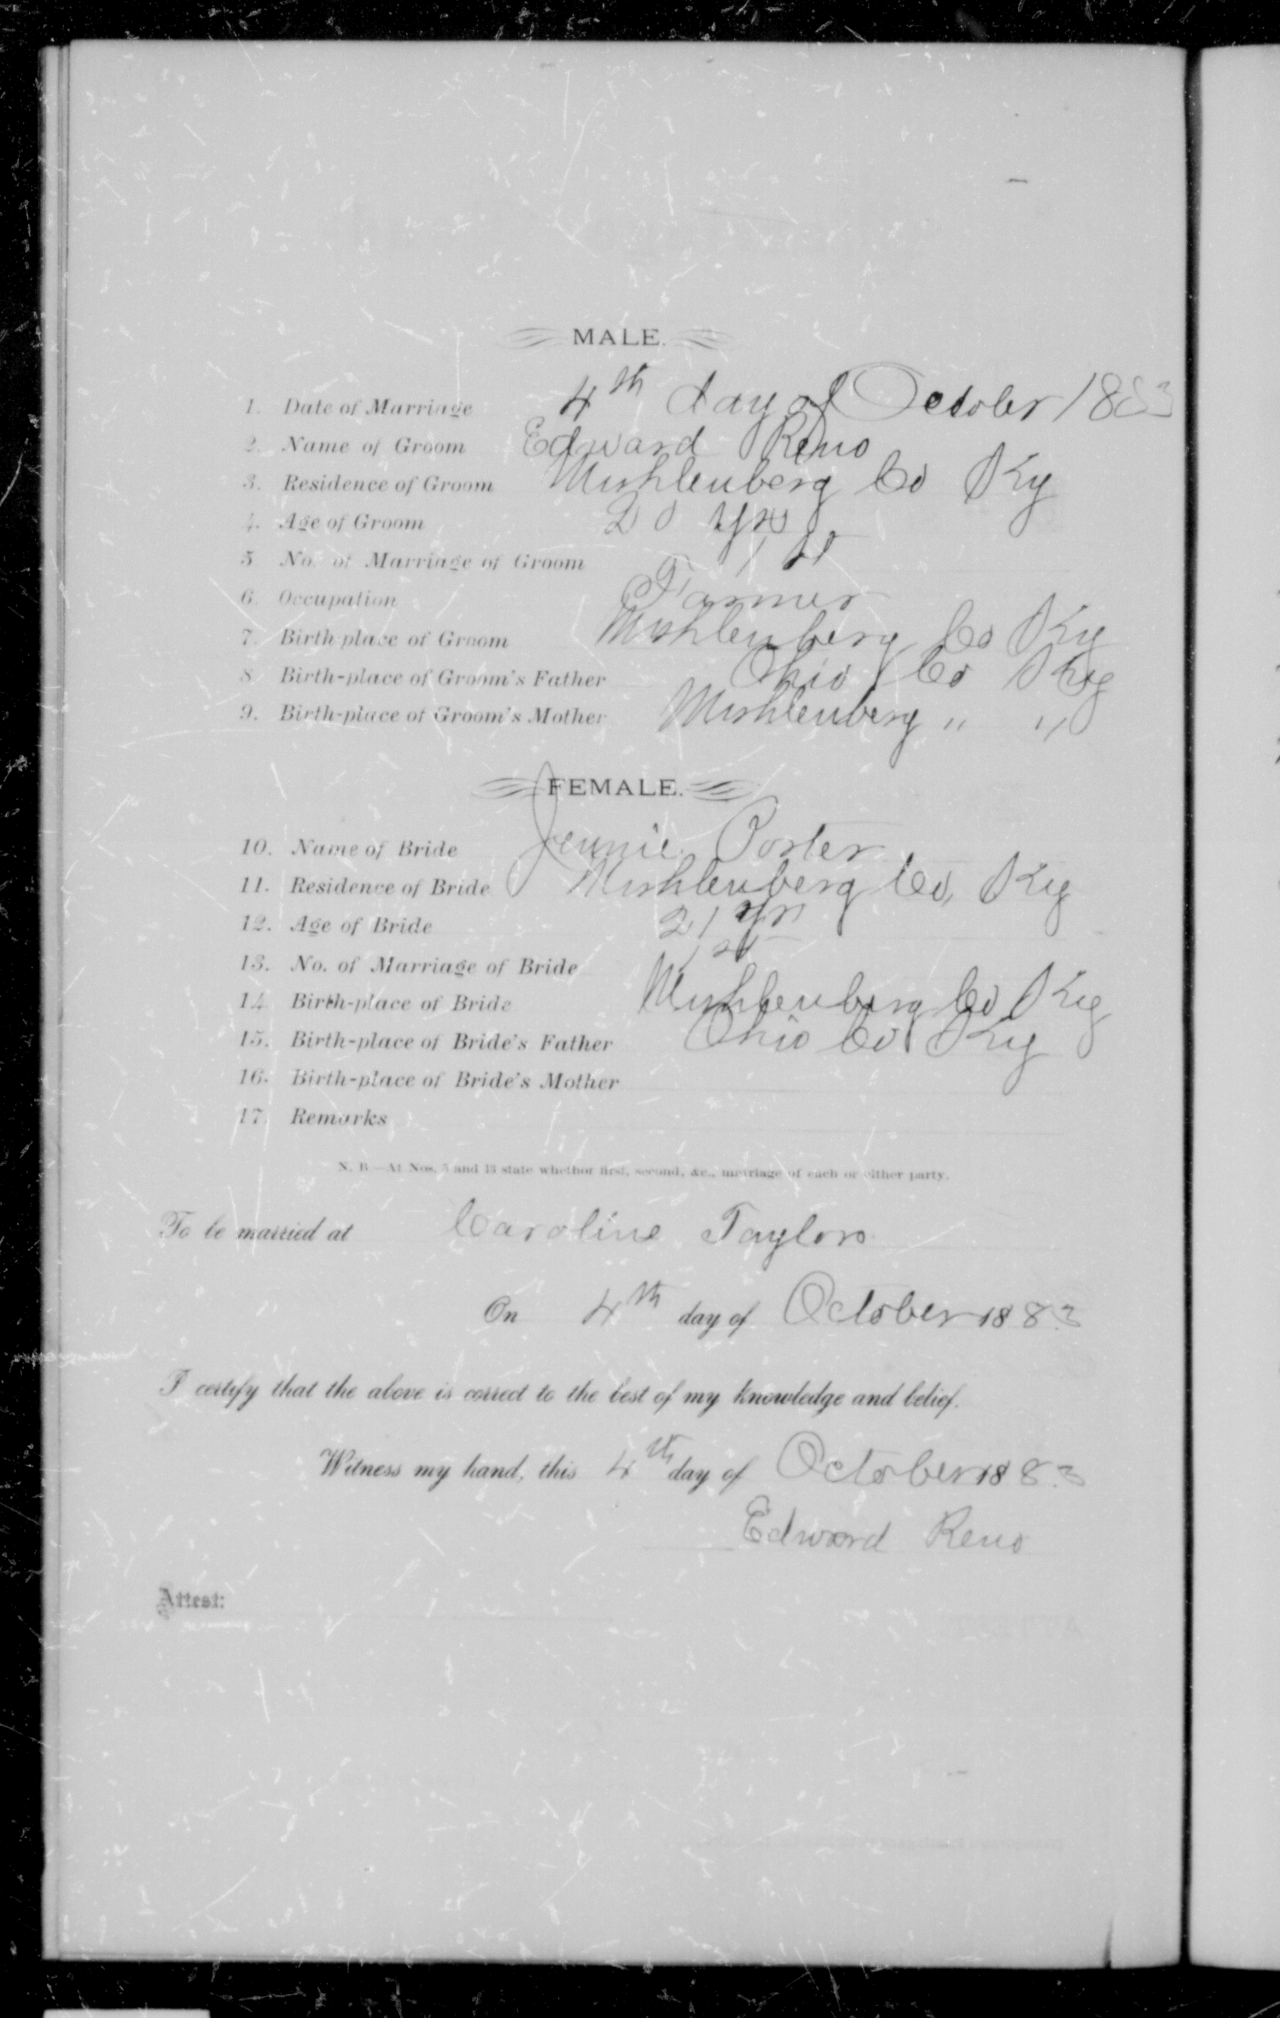 MALE.
1. Date of Marriage 4th day of October 1883
2. Name of Groom Edward Reno
3. Residence of Groom Muhlenberg Co Ky
4. Age of Groom 20 yrs
5 No. of Marriage of Groom 1st
6. Occupation Farmer
7. Birth-place of Groom Muhlenberg Co Ky
8 Birth-place of Groom's Father Ohio Co Ky
9. Birth-place of Groom's Mother Muhlenberg " "
FEMALE.
10. Name of Bride Jennie Porter
11. Residence of Bride Muhlenberg Co, Ky
12. Age of Bride 21 yrs
13. No. of Marriage of Bride 1st
14. Birth-place of Bride Muhlenberg Co Ky
15. Birth-place of Bride's Father Ohio Co Ky
16. Birth-place of Bride's Mother
17. Remarks
N. B.—At Nos. 5 and 13 state whether first, second, &c., marriage of each or either party.
To be married at Caroline Taylors
On 4th day of October 1883
I certify that the above is correct to the best of my knowledge and belief.
Witness my hand, this 4th day of October 1883
Edward Reno
Attest: